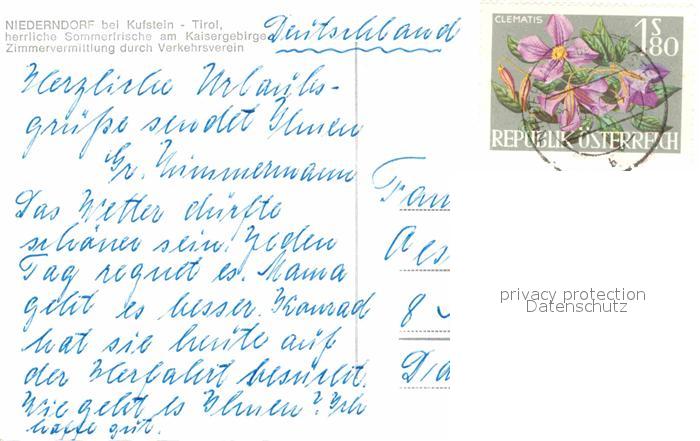 NIEDERNDORF bei Kufstein - Tirol,
herrliche Sommerfrische am Kaisergebirge
Zimmervermittlung durch Verkehrsverein
Deutschland
CLEMATIS
1S80
REPUBLIK ÖSTERREICH
Herzliche Urlaubs-
grüße sendet Ihnen
Gr. Zimmermann
Das Wetter dürfte
schöner sein. Jeden
Tag regnet es. Mama
geht es besser. Konrad
hat sie heute auf
der Herfahrt besucht.
Wie geht es Ihnen? Ich
hoffe gut.
Fam
8
privacy protection
Datenschutz